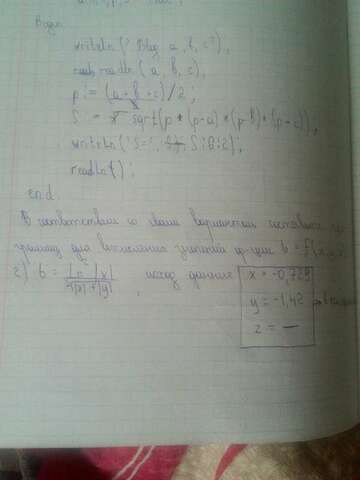 Begin
writeln('Vvog a, b, c');
readln(a, b, c);
p:=(a+b+c)/2;
S:= sqrt(p*(p-a)*(p-b)*(p-c));
writeln('S=', S:8:2);
readln();
end.
В соответствии со своим вариантом составить про
грамму для вычисления значений ф-ции b = f(x,y,z)
2) b = , исход данные x = -0,729
y = -1,42
z = —